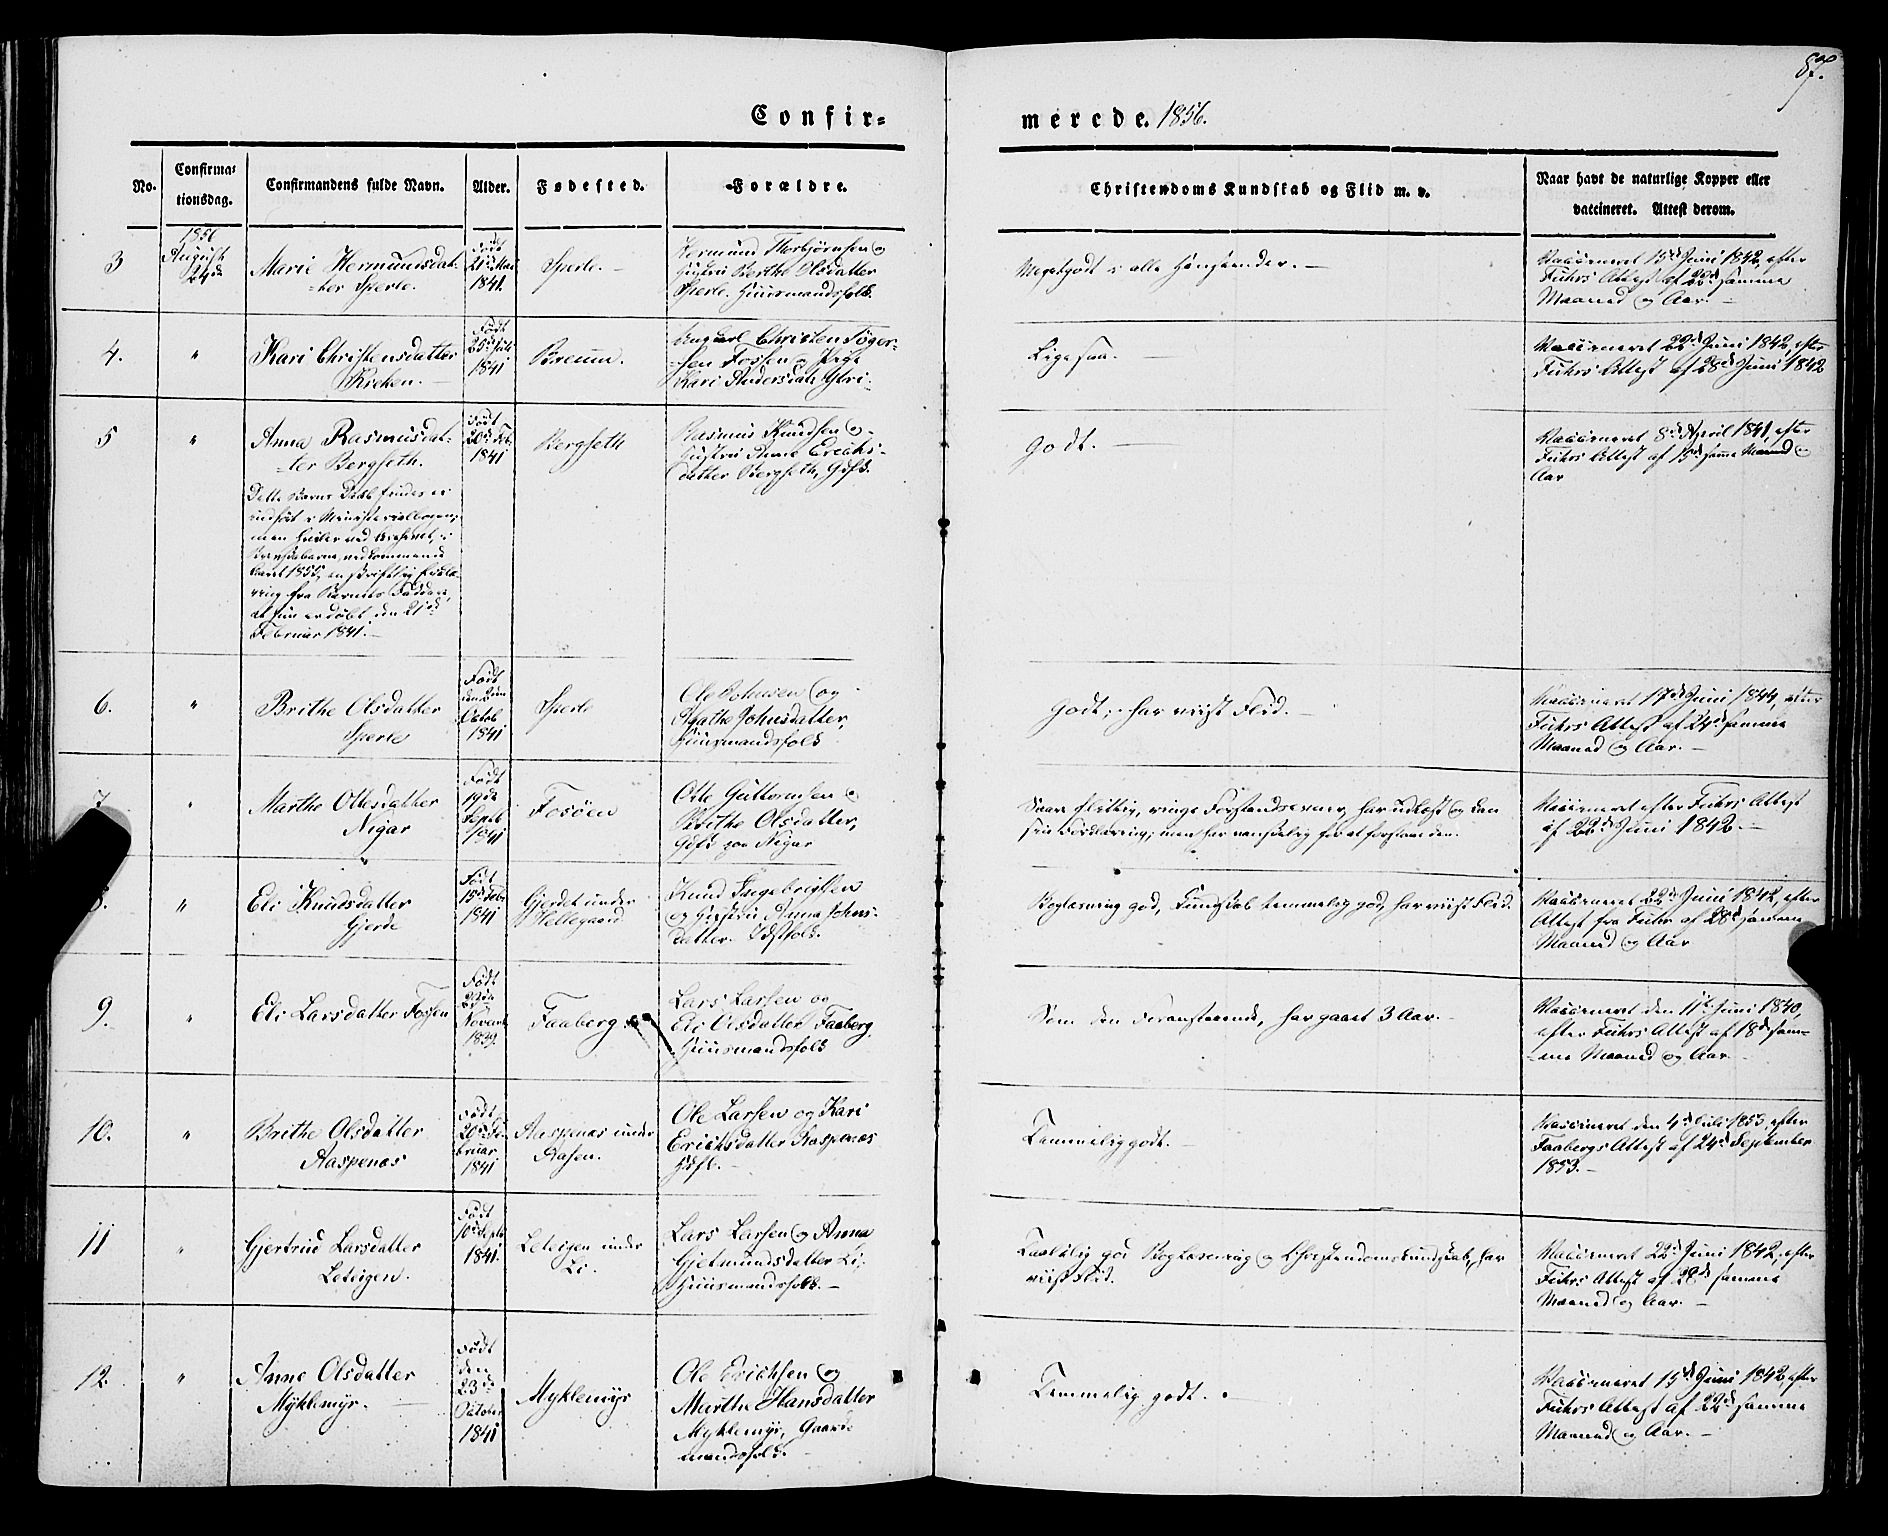 87.
Confir-
merede. 1856.
No.
Confirma-
tionsdag.
Confirmandens fulde Navn.
Alder.
Fødested.
Forældre.
Christendoms Kundskab og Flid m. v.
Naar havt de naturlige Kopper eller
vaccineret. Attest derom.
3
1856
August
24de
Marie Hermundsdat-
ter Sperle.
Født
21de Mai
1841.
Sperle.
Hermund Thorbjørnsen og
Hustru Berthe Olsdatter
Sperle. Huusmandsfolk.
Megetgodt i alle Henseender.
Vaccineret 15de Juni 1842, efter
Fuhrs Attest af 22de samme
Maaned og Aar.
4.
"
Kari Christensdatter
Kirken.
Født
25de Juli
1841
Breum.
Ungkarl Christen
sen Fossen og Pige
Kari Andersdatr
Ligesaa.
Vaccineret 22de Juni 1842, efter
Fuhrs Attest af 28de Juni 1842
5
"
Anna Rasmusdat-
ter Bergseth.
Dette Barns Daab findes ei
indført i Ministerialbogen;
men
vedkommende
Aaret 1855, en skriftlig Erklæ-
ring fra Barnets Faddere,
at hun er døbt den 21de
Februar 1841.
Født
20de Feb.
1841
Bergseth
Rasmus Knudsen og
Hustru Anna Erichs-
datter Bergseth, Gdfk.
Godt.
Vaccineret 8de April 1841, efter
Fuhrs Attest af 15de samme Maaned og
Aar
6.
"
Brithe Olsdatter
Sperle
Født
den 2den
Octob
1841
Sperle
Ole Johnsen og
Agathe Johnsdatter,
Huusmandsfolk
Godt; har viist Flid.
Vaccineret 17de Juni 1844, efter
Fuhrs Attest af 24de samme
Maaned og Aar.
7
"
Marthe Ottesdatter
Nigar
Født
19de
Septb
1841
Fosøen
Otte Guttormsen og
Brithe Olsdatter,
Gdfk paa Nigar
Svær flittig, ringe Forstandsevner, har udlæst og kan
sin Forklaring; men har vanskelig for at forstaae den.
Vaccineret efter Fuhrs Attest
af 22de Juni 1842.
8.
"
Eli Knudsdatter
Gjerde
Født
15de
1841
Gjerdet under
Hellegaard.
Knud Ingebrigtsen
og Hustru Anna Johns-
datter.
Boglæsning god, Kundskab temmelig god, har viist Flid.
Vaccineret 22de Juni 1842, efter
Attest fra Fuhr af 28de samme
Maaned og Aar
9.
"
Eli Larsdatter Fossen
Født
22de
Novembr
1839.
Faaberg
Lars Larsen og
Eli Olsdatter Faaberg.
Huusmandsfolk
Som den Foranstaaende, har gaaet 3 Aar.
Vaccineret den 11te Juni 1840,
efter Fuhrs Attest af 18de sam-
me Maaned og Aar.
10.
"
Brithe Olsdatter
Aaspenæs
Født
20de Fe-
bruar
1841
Aaspenæs under
Aasen.
Ole Larsen og Kari
Erichsdatter Aaspenæs
Gdfk.
Temmelig godt.
Vaccineret den 4de Juli 1853, efter
Faabergs Attest af 24de September
1853.
11
"
Gjertrud Larsdatter
Leteigen.
Født
10de Septb
1841.
Leteigen under
Li.
Lars Larsen og Anna
Gjetmundsdatter Li,
Huusmandsfolk.
god Boglæsning og Christendomskundskab, har
viist Flid.
Vaccineret 22de Juni 1842, efter
Fuhrs Attest af 28de samme
Maaned og Aar.
12.
"
Anne Olsdatter
Myklemyr.
Født
den
23de
October
1841
Myklemyr
Ole Erichsen og
Marthe Hansdatter
Myklemyr, Gaard-
mandsfolk.
Temmelig godt.
Vaccineret 15de Juni 1842, efter
Fuhrs Attest af 22de samme
Maaned og Aar.